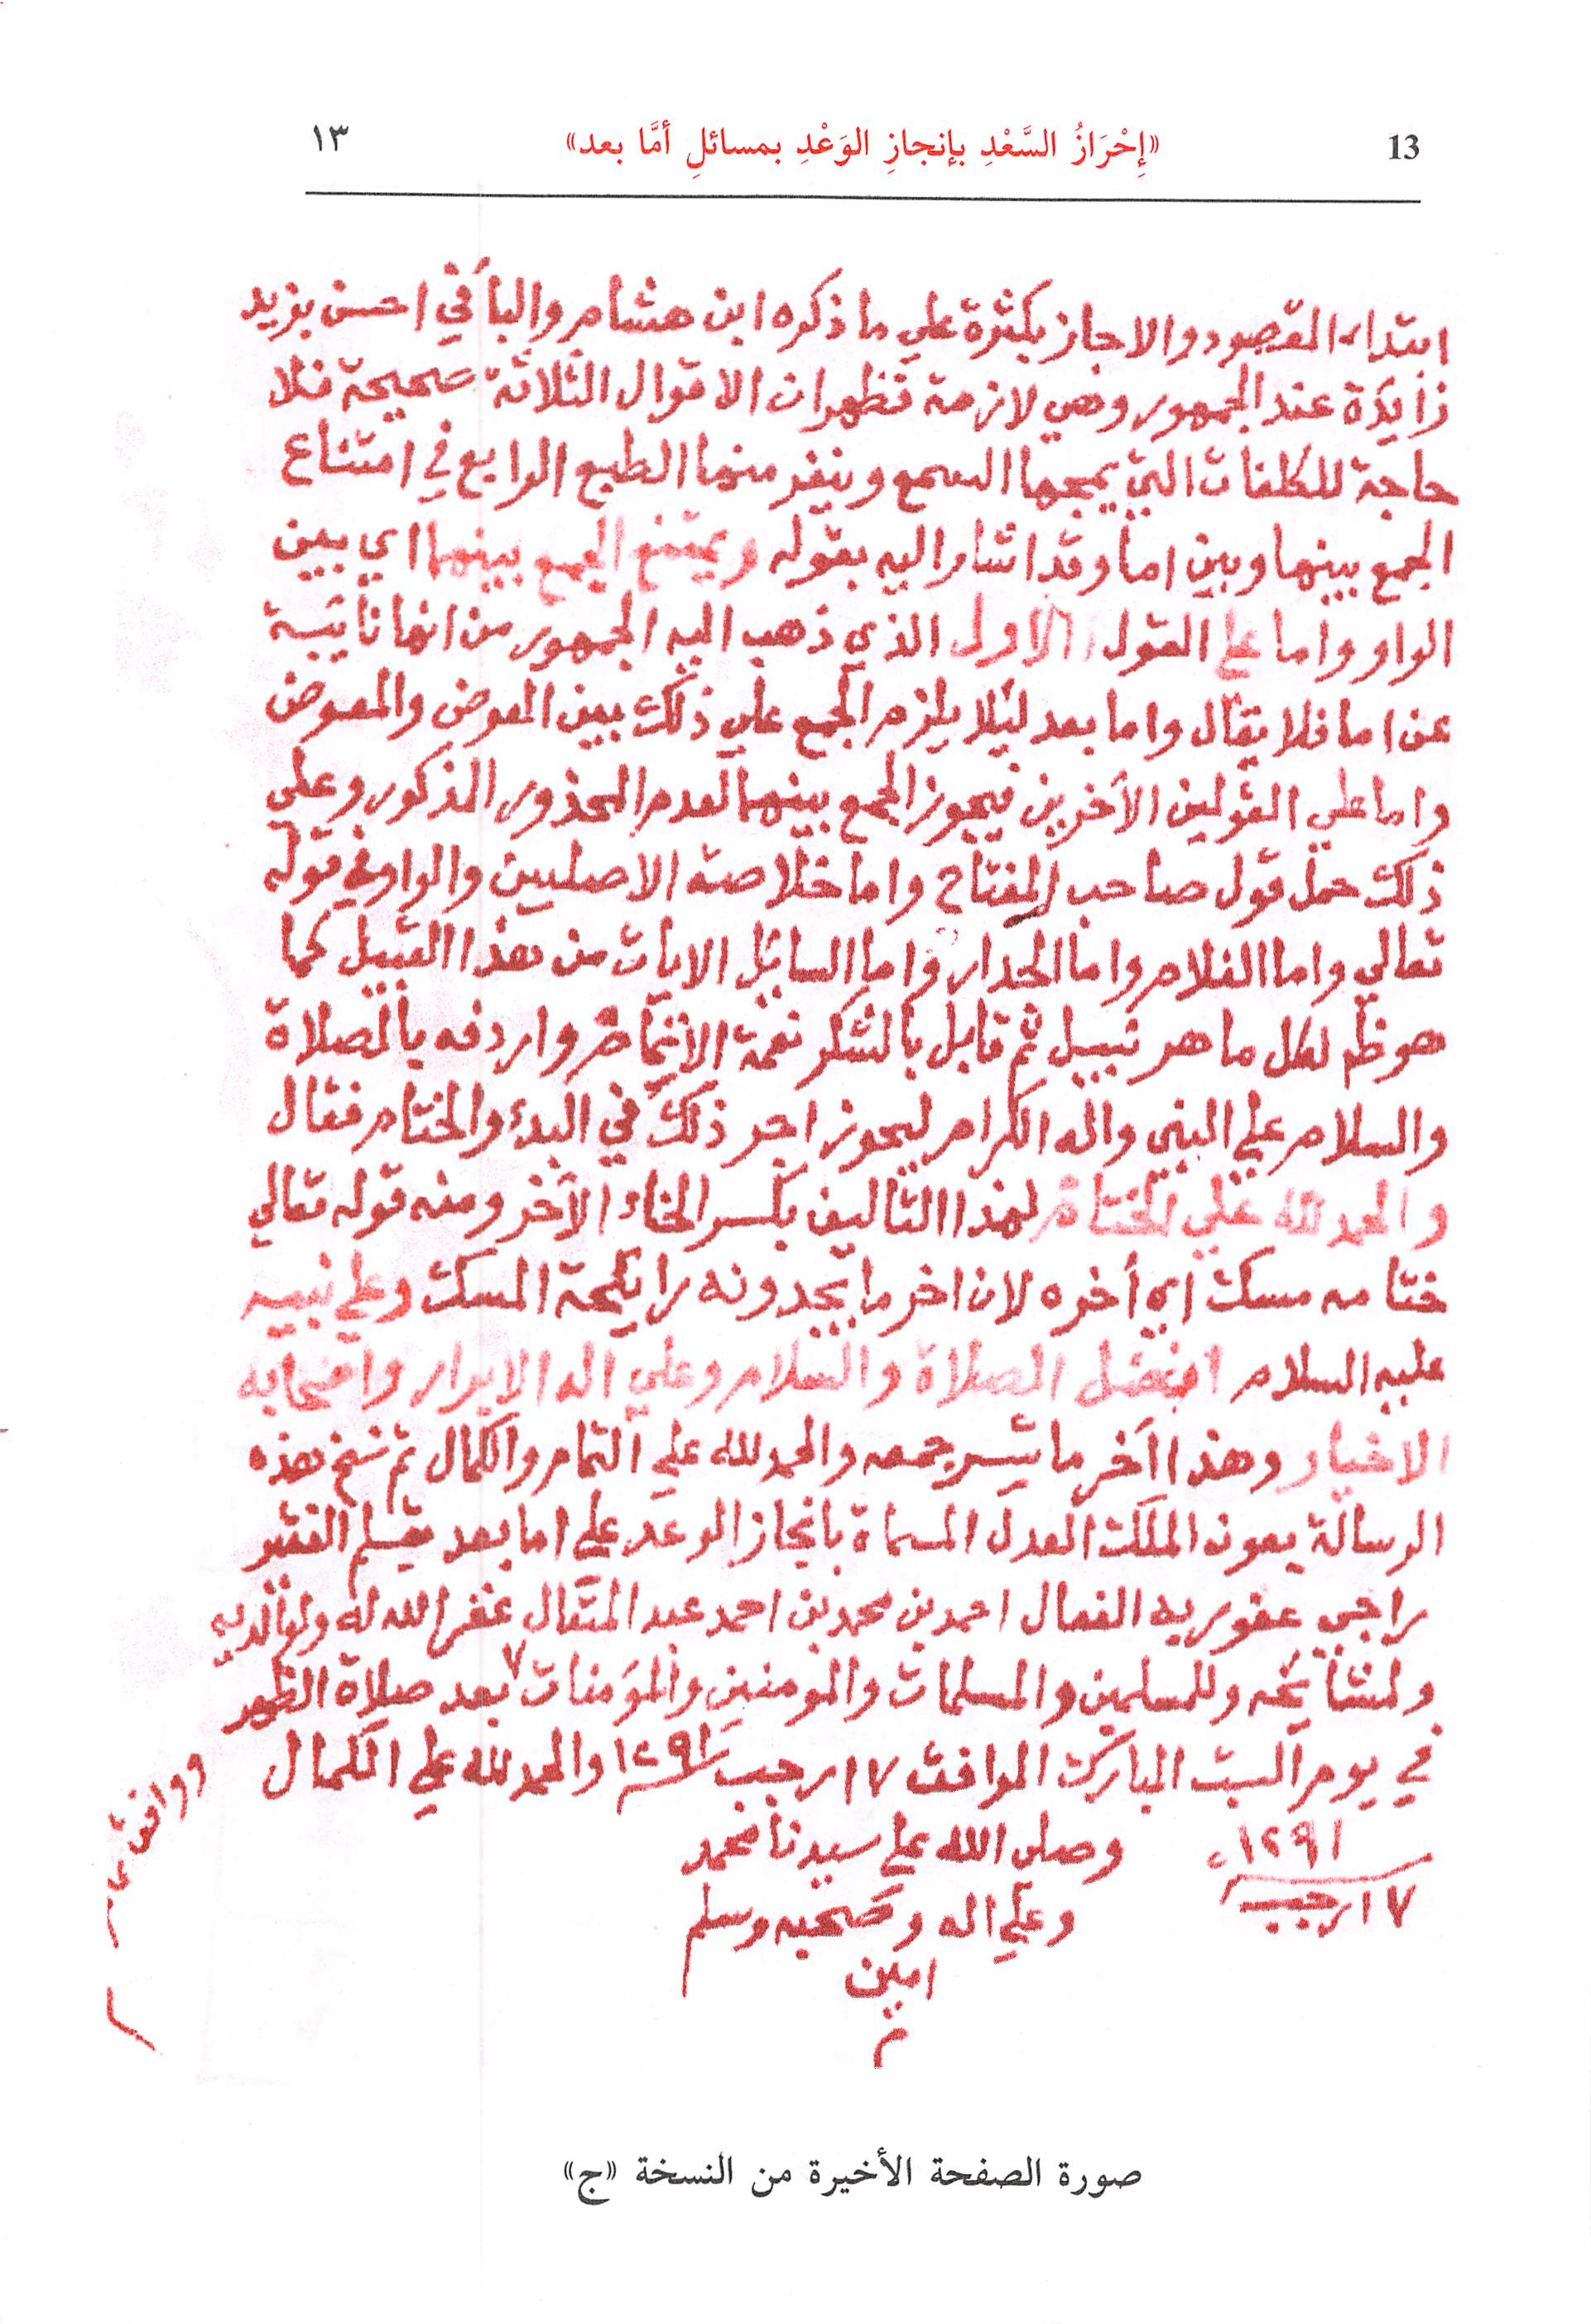 13 «إِحْرَازُ السَّعْدِ بإنجازِ الوَعْدِ بمسائلِ أمَّا بعد» ١٣
ابتداء المقصود والاجاز بكثرة علي ما ذكره ابن هشام والبا في احسن بزيد
زايدة عند الجمهور وهي لازمة فظهر ان الاقوال الثلاثة صحيحة فلا
حاجة للكلفات التي يمجها السمع وينفر منها الطبع الرابع في امتناع
الجمع بينها وبين اما وقد اشار اليه بقوله ويمتنع الجمع بينهما اي بين
الواو واما علي القول الاول الذي ذهب اليه الجمهور من انها نايبة
عن اما فلا يقال واما بعد ليلا يلزم الجمع علي ذلك بين العوض والمعوض
واما علي القولين الآخرين فيجوز الجمع بينهما لعدم المحذور المذكور وعلي
ذلك حمل قول صاحب المفتاح واما خلاصة الاصليين والواو في قوله
تعالي واما الغلام واما الجدار واما السايل الايات من هذا القبيل كما
هو ظم لكل ماهر نبيل ثم قابل بالشكر نعمة الاتمام واردفه بالصلاة
والسلام علي النبي واله الكرام ليحوز اجر ذلك في البدء والختام فقال
والحمد لله علي الختام لهذا التاليف بكسر الخاء الآخر ومنه قوله تعالي
ختامه مسك اي أخره لان اخر ما يجدونه رايحة المسك وعلي نبيه
عليه السلام افضل الصلاة والسلام وعلي اله الابرار واصحابه
الاخيار وهذا اآخر ما تيسر جمعه والحمد لله علي التمام والكمال تم نسخ هذه
الرسالة بعون الملك العدل المسماة بانجاز الوعد علي اما بعد بقلم الفقير
راجي عفو ربه الفعال احمد بن محمد بن احمد عبد المتعال غفر الله له ولوالديه
ولمشايخه وللمسلمين والمسلمات والمومنين والمؤمنات ٧ بعد صلاة الظهر
في يوم السبت المبارك الموافق ١٧ رجب ١٢٩١ والحمد لله علي الكمال
وصلى الله علي سيدنا محمد
وعلي اله وصحبه وسلم
امين
م
١٢٩١
١٧ رجب
ووافق
صورة الصفحة الأخيرة من النسخة «ج»